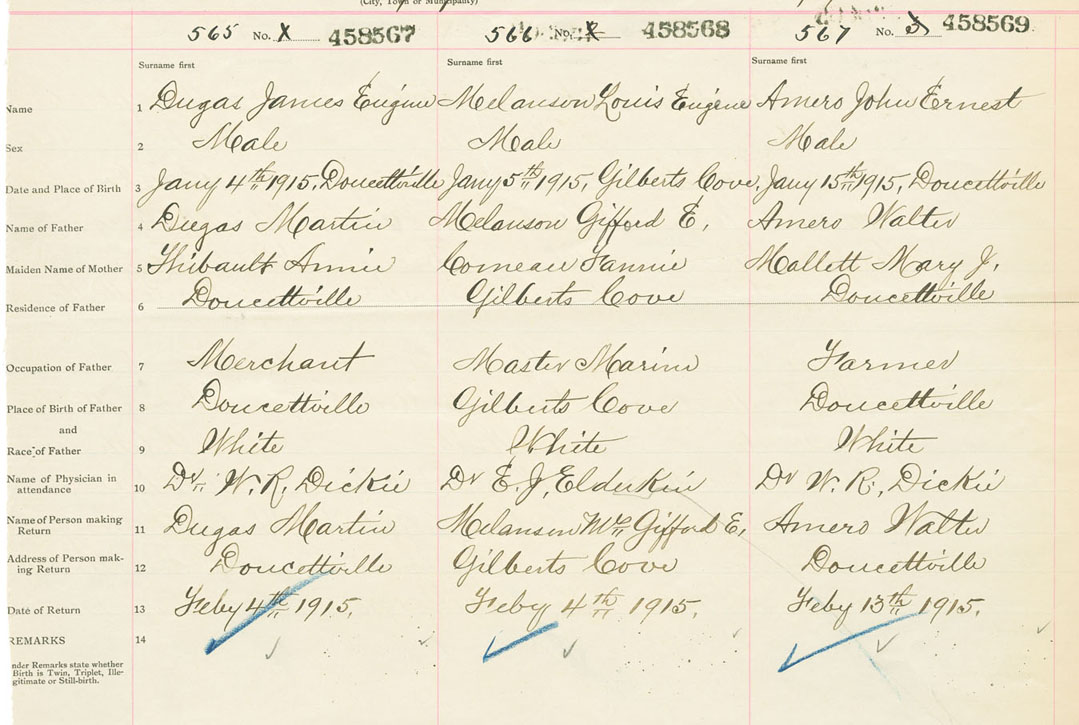 (City, Town or Municipality)
565 No. 458567 566 No. 458568 567 No. 3 458569
Surname first Surname first Surname first
Name 1 Dugas James Eugine Melanson Louis Eugene Amero John Ernest
Sex 2 Male Male Male
Date and Place of Birth 3 Jany 4th 1915, Doucettville Jany 5th 1915, Gilberts Cove, Jany 15th 1915, Doucettville
Name of Father 4 Dugas Martin Melanson Gifford E, Amero Walter
Maiden Name of Mother 5 Thibault Annie Comeau Fannie Mallett Mary J.
Residence of Father 6 Doucettville Gilberts Cove Doucettville
Occupation of Father 7 Merchant Master Marine Farmer
Place of Birth of Father 8 Doucettville Gilberts Cove Doucettville
and
Race of Father 9 White White White
Name of Physician in
attendance 10 Dr. W. R. Dickie Dr E. J. Elderkin Dr W. R. Dickie
Name of Person making
Return 11 Dugas Martin Melanson Mrs Gifford E, Amero Walter
Address of Person mak-
ing Return 12 Doucettville Gilberts Cove Doucettville
Date of Return 13 Feby 4th 1915. Feby 4th 1915. Feby 13th 1915.
REMARKS 14
nder Remarks state whether
Birth is Twin, Triplet, Ille-
gitimate or Still-birth.